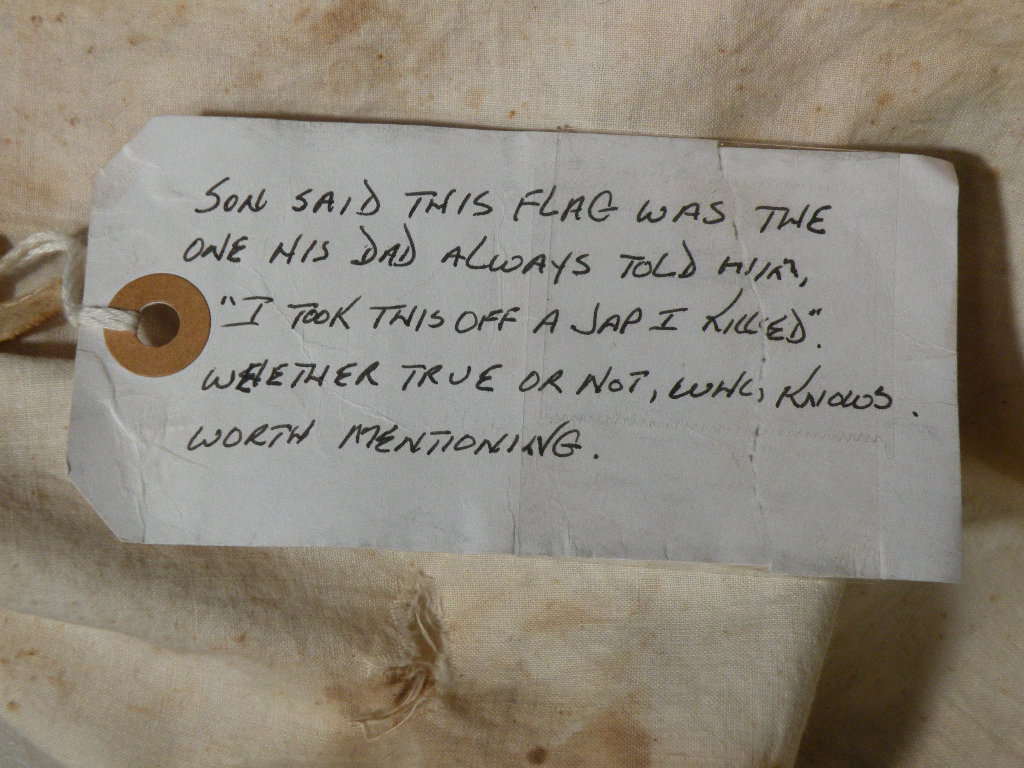 SON SAID THIS FLAG WAS THE
ONE HIS DAD ALWAYS TOLD HIM,
"I TOOK THIS OFF A JAP I KILLED".
WHETHER TRUE OR NOT, WHO KNOWS.
WORTH MENTIONING.